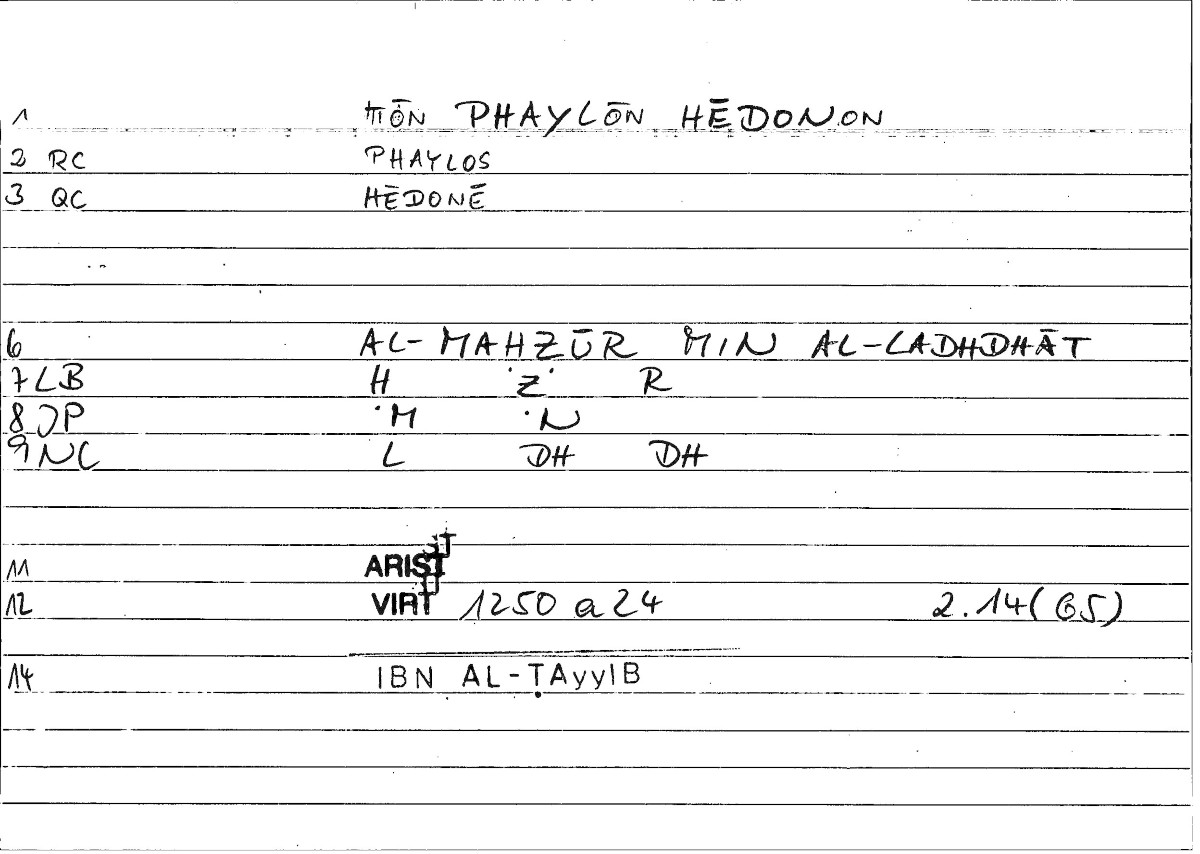 1 TŌN PHAYLŌN HĒDONON
2 RC PHAYLOS
3 QC HĒDONĒ
6 AL-MAHZŪR MIN AL-LADHDHĀT
7 LB H Z R
8 JP M N
9 NC L DH DH
11 ARIST
12 VIRT 1250 a 24 2.14(65)
14 IBN AL-ṬAyyIB